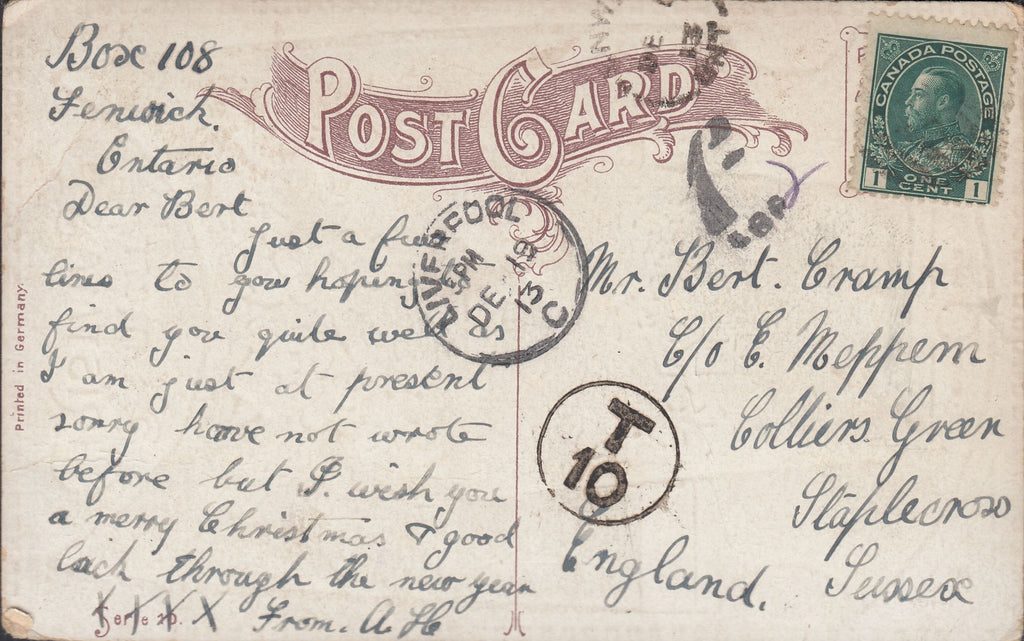 POST CARD
CANADA POSTAGE
1 ONE CENT 1
Box 108
Fenwich.
Entario
Dear Bert
Just a few
lines to you hoping
find you quite well as
I am just at present
sorry have not wrote
before but I. wish you
a merry Christmas & good
luck through the new year
X X X X From. A. H
Serie 20.
Printed in Germany.
LIVERPOOL
5 PM
DE 19
13
C
T
10
Mr. Bert. Cramp
C/o E. Meppem
Colliers. Green
Staplecross
Sussex
England.